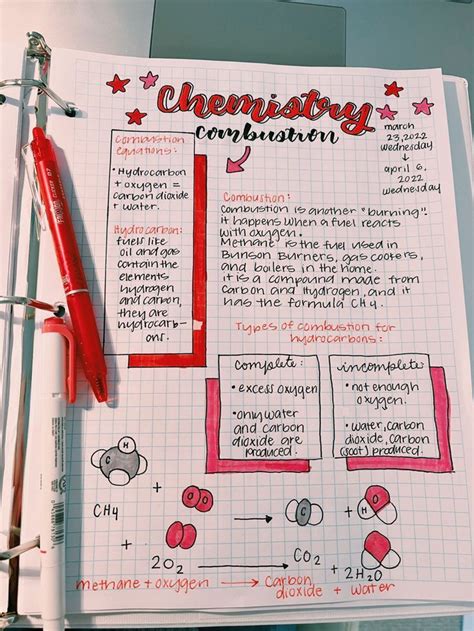 Chemistry
combustion
march
23, 2022
wednesday
april 6,
2022
wednesday
Combustion
Equations:
• Hydrocarbon
+ oxygen =
carbon dioxide
+ water.
Hydrocarbon:
fuels like
oil and gas
contain the
elements
hydrogen
and carbon,
they are
hydrocarb-
ons.
Combustion:
Combustion is another "burning".
it happens when a fuel reacts
with oxygen.
Methane is the fuel used in
Bunson Burners, gas cooters,
and boilers in the home.
it is a compound made from
Carbon and Hydrogen, and it
has the formula CH4.
Types of combustion for
hydrocarbons:
complete:
• excess oxygen
• only water
and carbon
dioxide are
produced.
incomplete:
• not enough
oxygen.
• water, carbon
dioxide, carbon
(soot) produced.
C H
+ O O → C + H O
CH4 + 2O2 → CO2 + 2H2O
methane + oxygen → Carbon dioxide + water